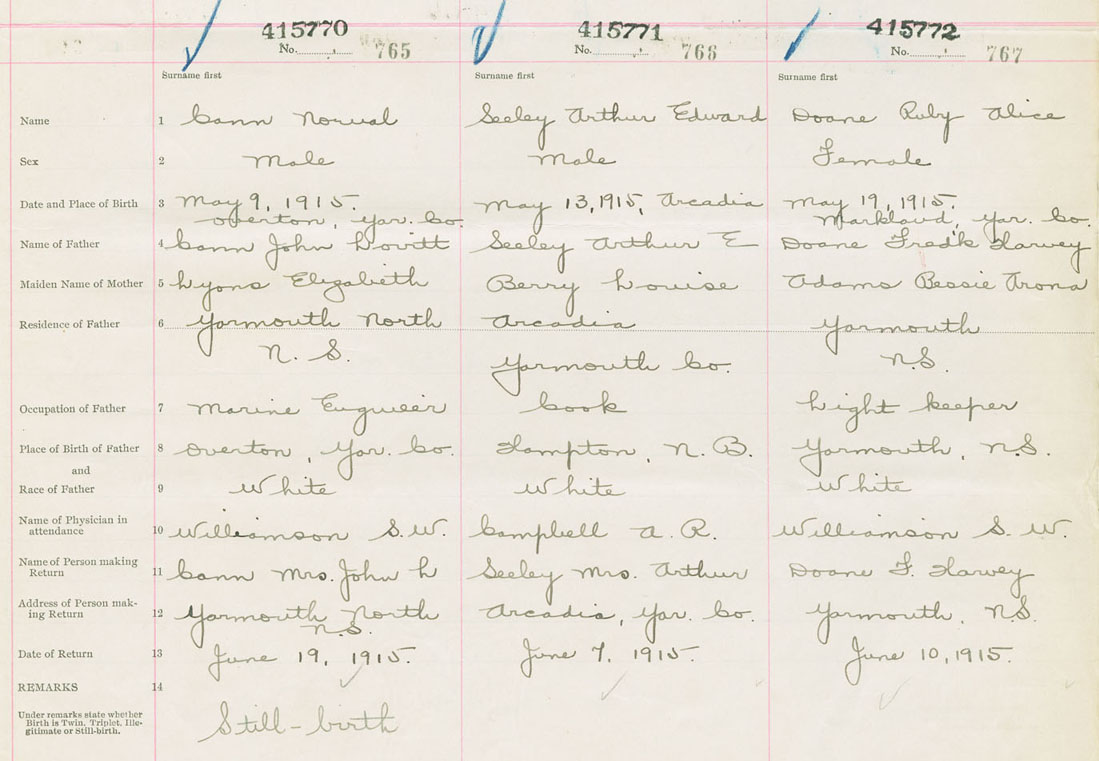 415770 415771 415772
No. 765 No. 766 No. 767
Surname first Surname first Surname first
Name 1 Cann Norval Seeley Arthur Edward Doane Ruby Alice
Sex 2 Male Male Female
Date and Place of Birth 3 May 9, 1915. May 13, 1915, Arcadia May 19, 1915.
Overton, Yar. Co. Markland, Yar. Co.
Name of Father 4 Cann John Lovitt Seeley Arthur E Doane Fredk Harvey
Maiden Name of Mother 5 Lyons Elizabeth Berry Louise Adams Bessie Arona
Residence of Father 6 Yarmouth North Arcadia Yarmouth
N. S. Yarmouth Co. N.S.
Occupation of Father 7 Marine Engineer Cook Light keeper
Place of Birth of Father 8 Overton, Yar. Co. Hampton, N. B. Yarmouth, N.S.
and
Race of Father 9 White White White
Name of Physician in
attendance 10 Williamson S. W. Campbell A. R. Williamson S. W.
Name of Person making
Return 11 Cann Mrs. John L Seeley Mrs. Arthur Doane F. Harvey
Address of Person mak-
ing Return 12 Yarmouth North Arcadia, Yar. Co. Yarmouth, N.S.
N.S.
Date of Return 13 June 19, 1915. June 7, 1915. June 10, 1915.
REMARKS 14
Under remarks state whether
Birth is Twin, Triplet, Ille-
gitimate or Still-birth.
Still-birth